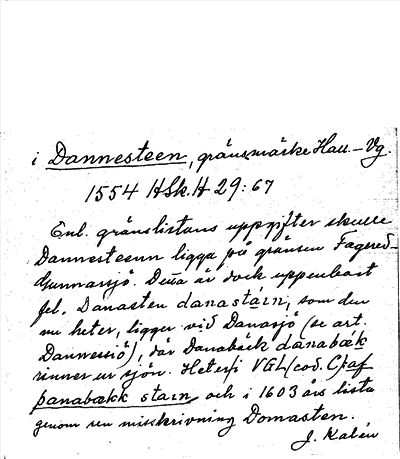 i Dannesteen, gränsmärke Hall.–Vg.
1554 HSk. H 29:67
Enl. gränslistans uppgifter skulle
Dannesteenn ligga på gränsen Fagered–
Gunnarsjö. Detta är dock uppenbart
fel. Danasten danasta͡in, som den
nu heter, ligger vid Danasjö (se art.
Dannessiö), där Danabäck danabæk
rinner ur sjön. Heter i VGL (cod. C) af
þanabækk stain och i 1603 års lista
genom ren misskrivning Domasten.
J. Kalén